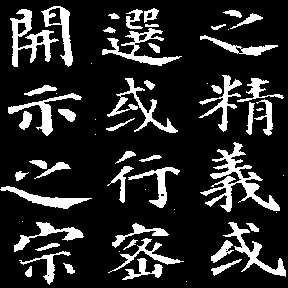 之精義或
選或行密
開示之宗